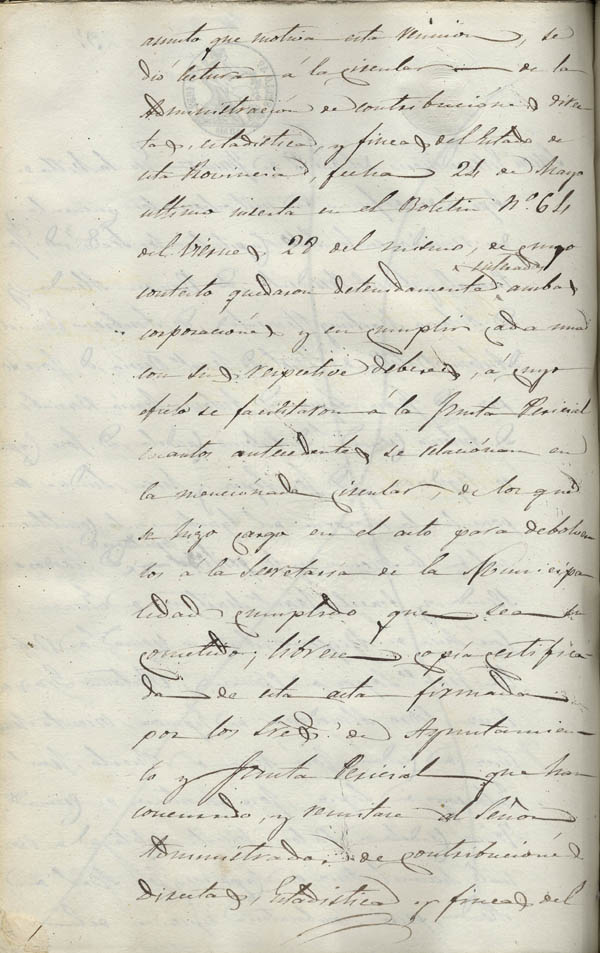 asunto que motiva esta reunion, se
dió lectura á la circular de la
Administración de contribuciones direc-
tas, estadistica y fincas del Estado de
esta Provincia, fecha 24 de Mayo
ultimo inserta en el Boletin Nº 64
del Viernes 28 del mismo, de cuyo
enterados
contesto quedaron detenidamente ambas
corporaciones y en cumplir cada una
con sus respectivos deberes, á cuyo
efecto se facilitaron á la Junta Pericial
cuantos antecedentes se relacionan en
la mencionada circular, de los que
se hizo cargo en el acto para debolver
los á la Secretaria de la Municipa
lidad cumplido que sea su
cometido; librese copia certifica
da de esta acta firmada
por los Sres. de Ayuntamien-
to y Junta Pericial que han
concurrido, y remitase al Señor
Administrador de contribuciones
directas, Estadistica y fincas del